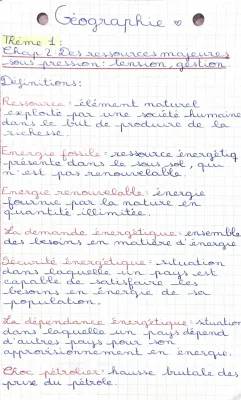 Géographie
Thème 1:
Chap 2. Des ressources majeures
sous pression: tension, gestion
Définitions:
Ressource: élément naturel
exploité par une société humaine
dans le but de produire de la
richesse.
Énergie fossile: ressource énergétiq
présente dans le sous sol, qui
n'est pas renouvelable.
Énergie renouvelable: énergie
fournie par la nature en
quantité illimitée.
La demande énergétique: ensemble
des besoins en matière d'énergie
Sécurité énergétique: situation
dans laquelle un pays est
capable de satisfaire les
besoins en énergie de sa
population.
La dépendance énergétique: situation
dans laquelle un pays dépend
d'autres pays pour son
approvisionnement en énergie.
Choc pétrolier: hausse brutale des
prix du pétrole.